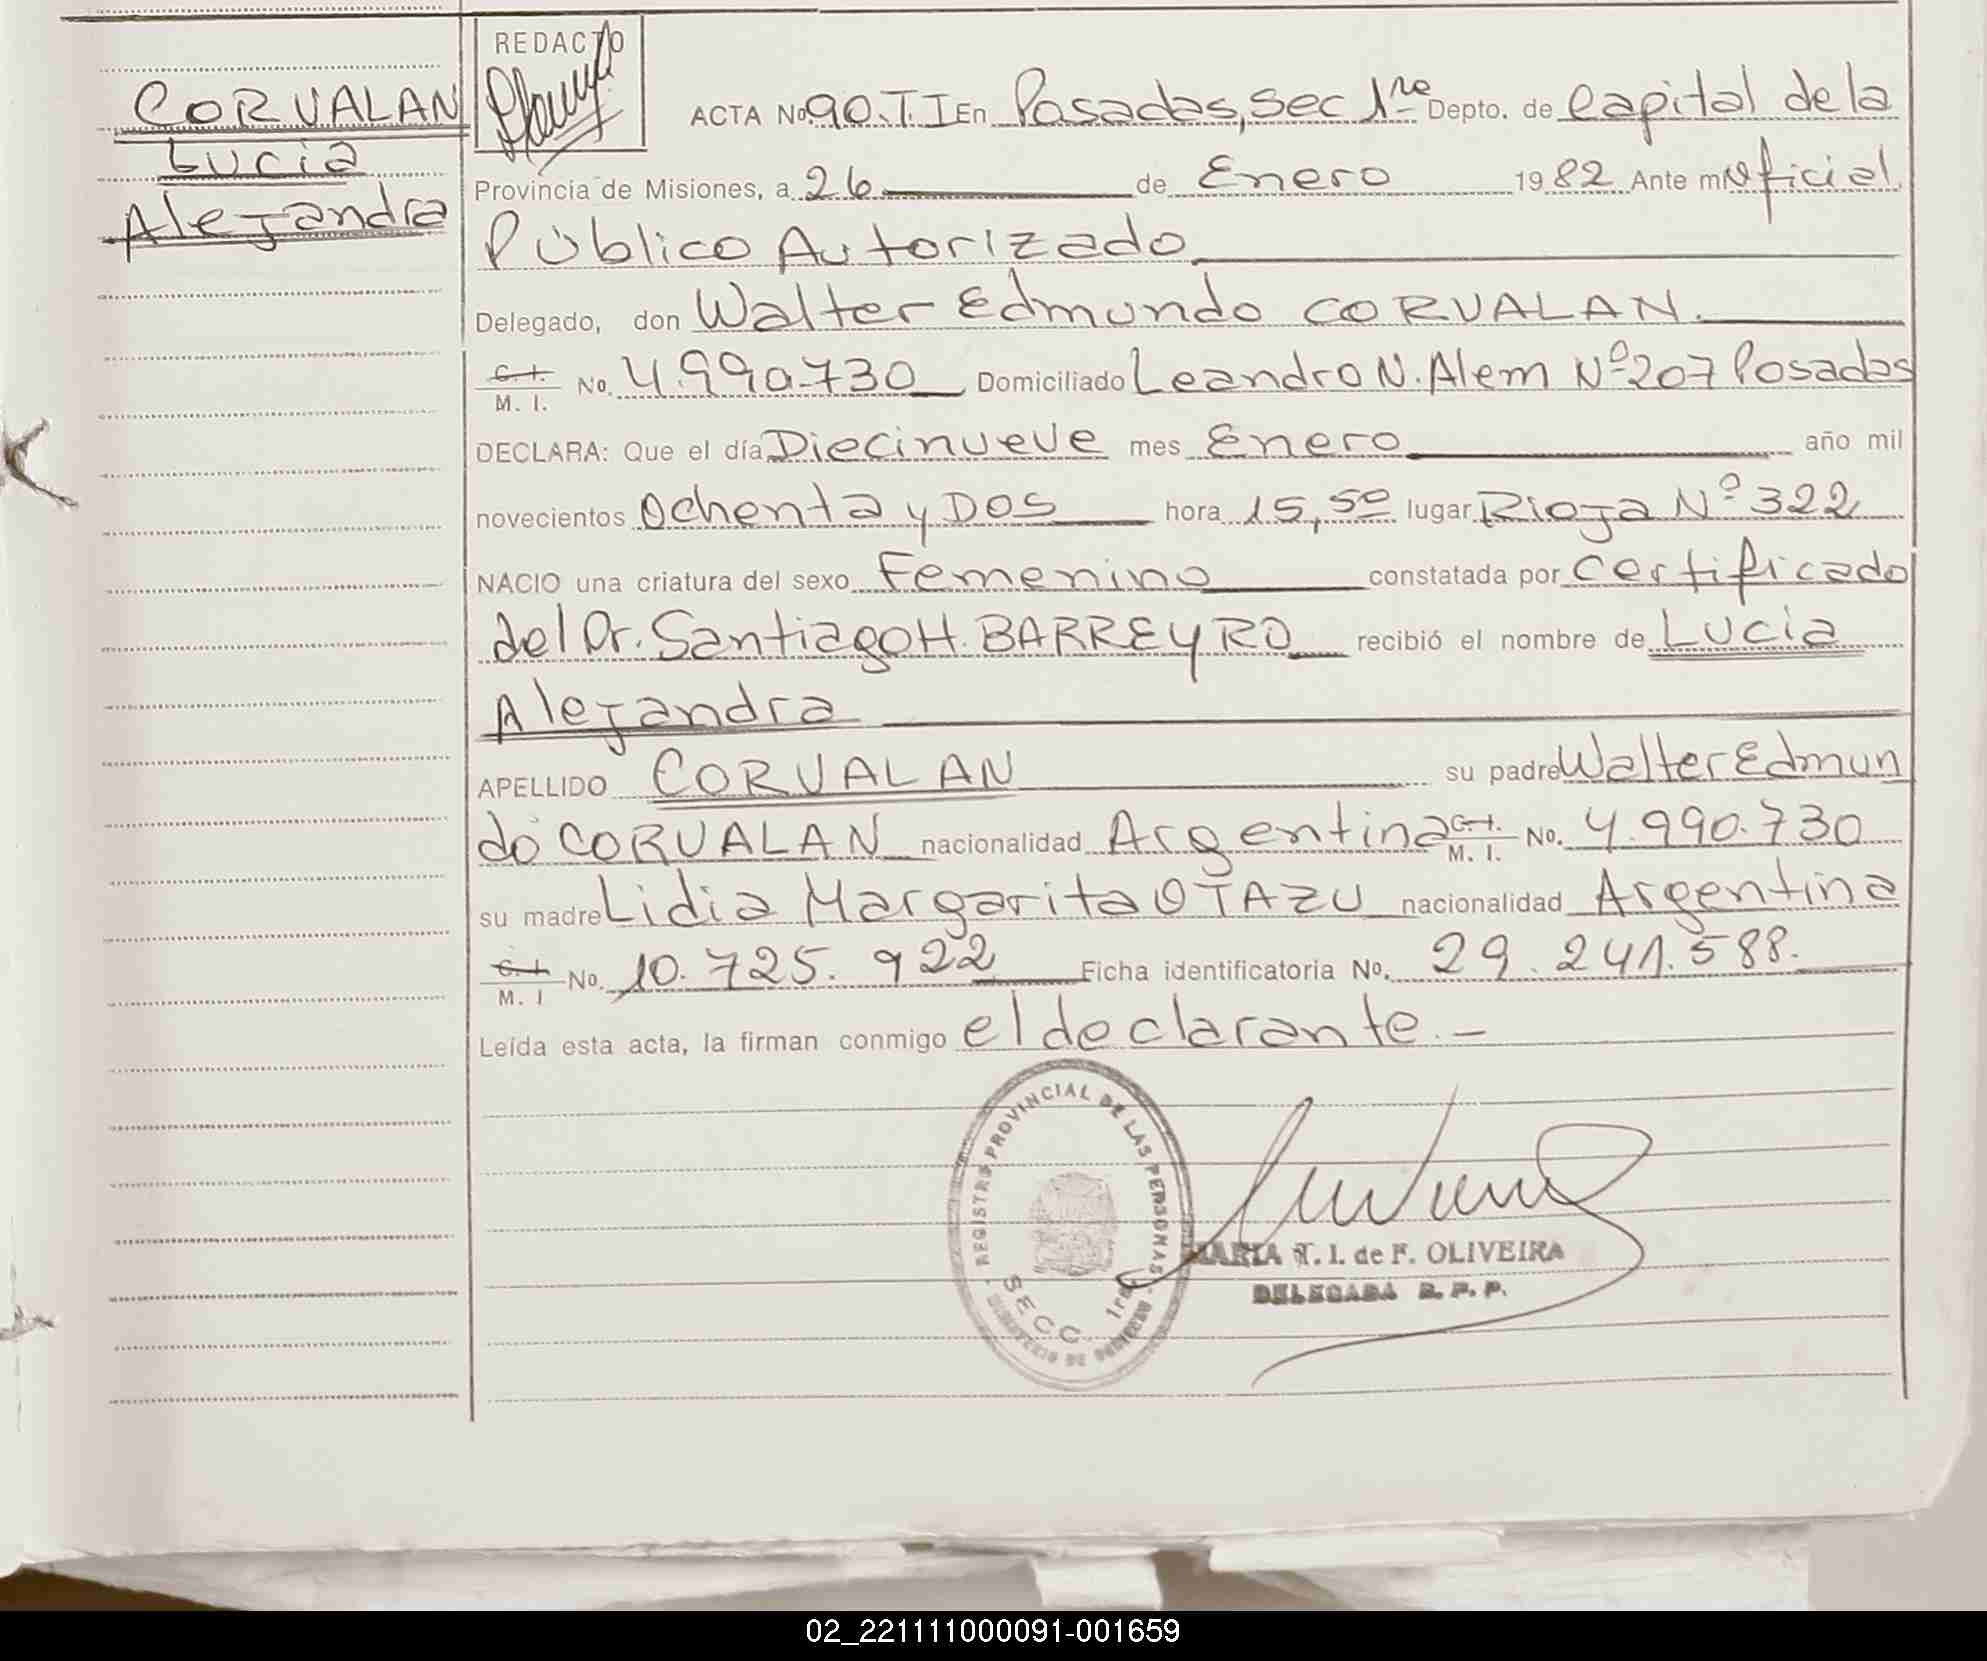 CORVALAN
Lucia
Alejandra
REDACTO
ACTA No. 90.T.I En Posadas, Sec 1ra Depto. de Capital de la
Provincia de Misiones, a 26 de Enero 1982 Ante mi Oficial
Público Autorizado
Delegado, don Walter Edmundo CORVALAN.
C. I. / M. I. No. 4.990.730 Domiciliado Leandro N. Alem Nº 207 Posadas
DECLARA: Que el día Diecinueve mes Enero año mil
novecientos Ochenta y DOS hora 15,50 lugar Rioja Nº 322
NACIO una criatura del sexo Femenino constatada por Certificado
del Dr. Santiago H. BARREYRO recibió el nombre de Lucia
Alejandra
APELLIDO CORVALAN su padre Walter Edmun
do CORVALAN nacionalidad Argentina C. I. / M. I. No. 4.990.730
su madre Lidia Margarita OTAZU nacionalidad Argentina
C. I. / M. I No. 10.725.922 Ficha identificatoria No. 29.241.588.
Leída esta acta, la firman conmigo el declarante.-
REGISTRO PROVINCIAL DE LAS PERSONAS
SECC. 1ra
MINISTERIO DE GOBIERNO
MARIA T. I. de F. OLIVEIRA
DELEGADA R. P. P.
02_221111000091-001659